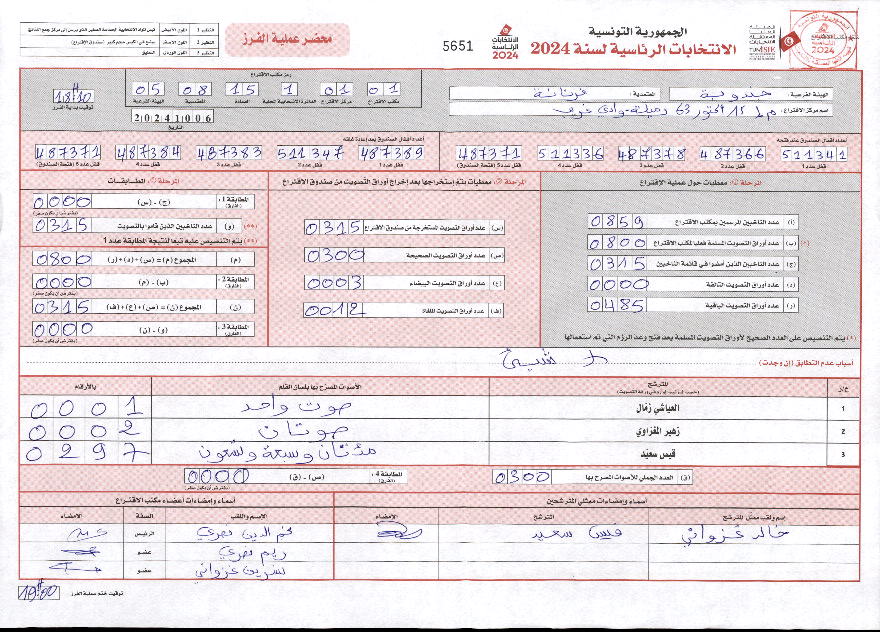 الجمهورية التونسية
الانتخابات الرئاسية لسنة 2024
الانتخابات الرئاسية 2024
5651
محضر عملية الفرز
الهيئة الفرعية: جندوبة
المعتمدية: فرنانة
اسم مركز الاقتراع:
رمز مكتب الاقتراع
01 01 1 15 08 05
مكتب الاقتراع مركز الاقتراع الدائرة الانتخابية المحلية العمادة المعتمدية الهيئة الفرعية
18H10
توقيت بداية الفرز
20241006
التاريخ
أعداد أقفال الصندوق عند فتحه
511341 487366 487378 511336 487371
قفل عدد 1 قفل عدد 2 قفل عدد 3 قفل عدد 4 قفل عدد 5 (فتحة الصندوق)
أعداد أقفال الصندوق بعد إعادة غلقه
487389 511347 487383 487384 487371
قفل عدد 1 قفل عدد 2 قفل عدد 3 قفل عدد 4 قفل عدد 5 (فتحة الصندوق)
معطيات حول عملية الاقتراع
(أ) عدد الناخبين المرسمين بمكتب الاقتراع 0859
(ب) عدد أوراق التصويت المسلمة فعليا لمكتب الاقتراع 0800
(ج) عدد الناخبين الذين أمضوا في قائمة الناخبين 0315
(د) عدد أوراق التصويت التالفة 0000
(ر) عدد أوراق التصويت الباقية 0485
(*) يتم التنصيص على العدد الصحيح لأوراق التصويت المسلمة بعد فتح وعد الرزم التي تم استعمالها
معطيات يتم استخراجها بعد إخراج أوراق التصويت من صندوق الاقتراع
(س) عدد أوراق التصويت المستخرجة من صندوق الاقتراع 0315
(ص) عدد أوراق التصويت الصحيحة 0300
(ع) عدد أوراق التصويت البيضاء 0003
(ف) عدد أوراق التصويت الملغاة 0012
المطابقات
المطابقة 1: (ج) - (س) 0000
(و) عدد الناخبين الذين قاموا بالتصويت 0315
(**) يتم التنصيص عليه تبعا لنتيجة المطابقة عدد 1
(م) المجموع (م) = (س)+(د)+(ر) 0800
المطابقة 2: (ب) - (م) 0000
(ن) المجموع (ن) = (ص)+(ع)+(ف) 0315
المطابقة 3: (و) - (ن) 0000
أسباب عدم التطابق (إن وجدت)
ع/ر المترشح الأصوات المصرح بها بلسان القلم بالأرقام
1 العياشي زمال صوت واحد 0001
2 زهير المغزاوي صوتان 0002
3 قيس سعيّد مئتان وسبعة وتسعون 0297
(ق) العدد الجملي للأصوات المصرح بها 0300
المطابقة 4: (ص) - (ق) 0000
أسماء وإمضاءات ممثلي المترشحين
اسم ولقب ممثل المترشح المترشح الإمضاء
خالد غزواني قيس سعيد
أسماء وإمضاءات أعضاء مكتب الاقتراع
الاسم واللقب الصفة الإمضاء
الرئيس
ريم عضو
نسرين غزواني عضو
توقيت ختم عملية الفرز
19H00